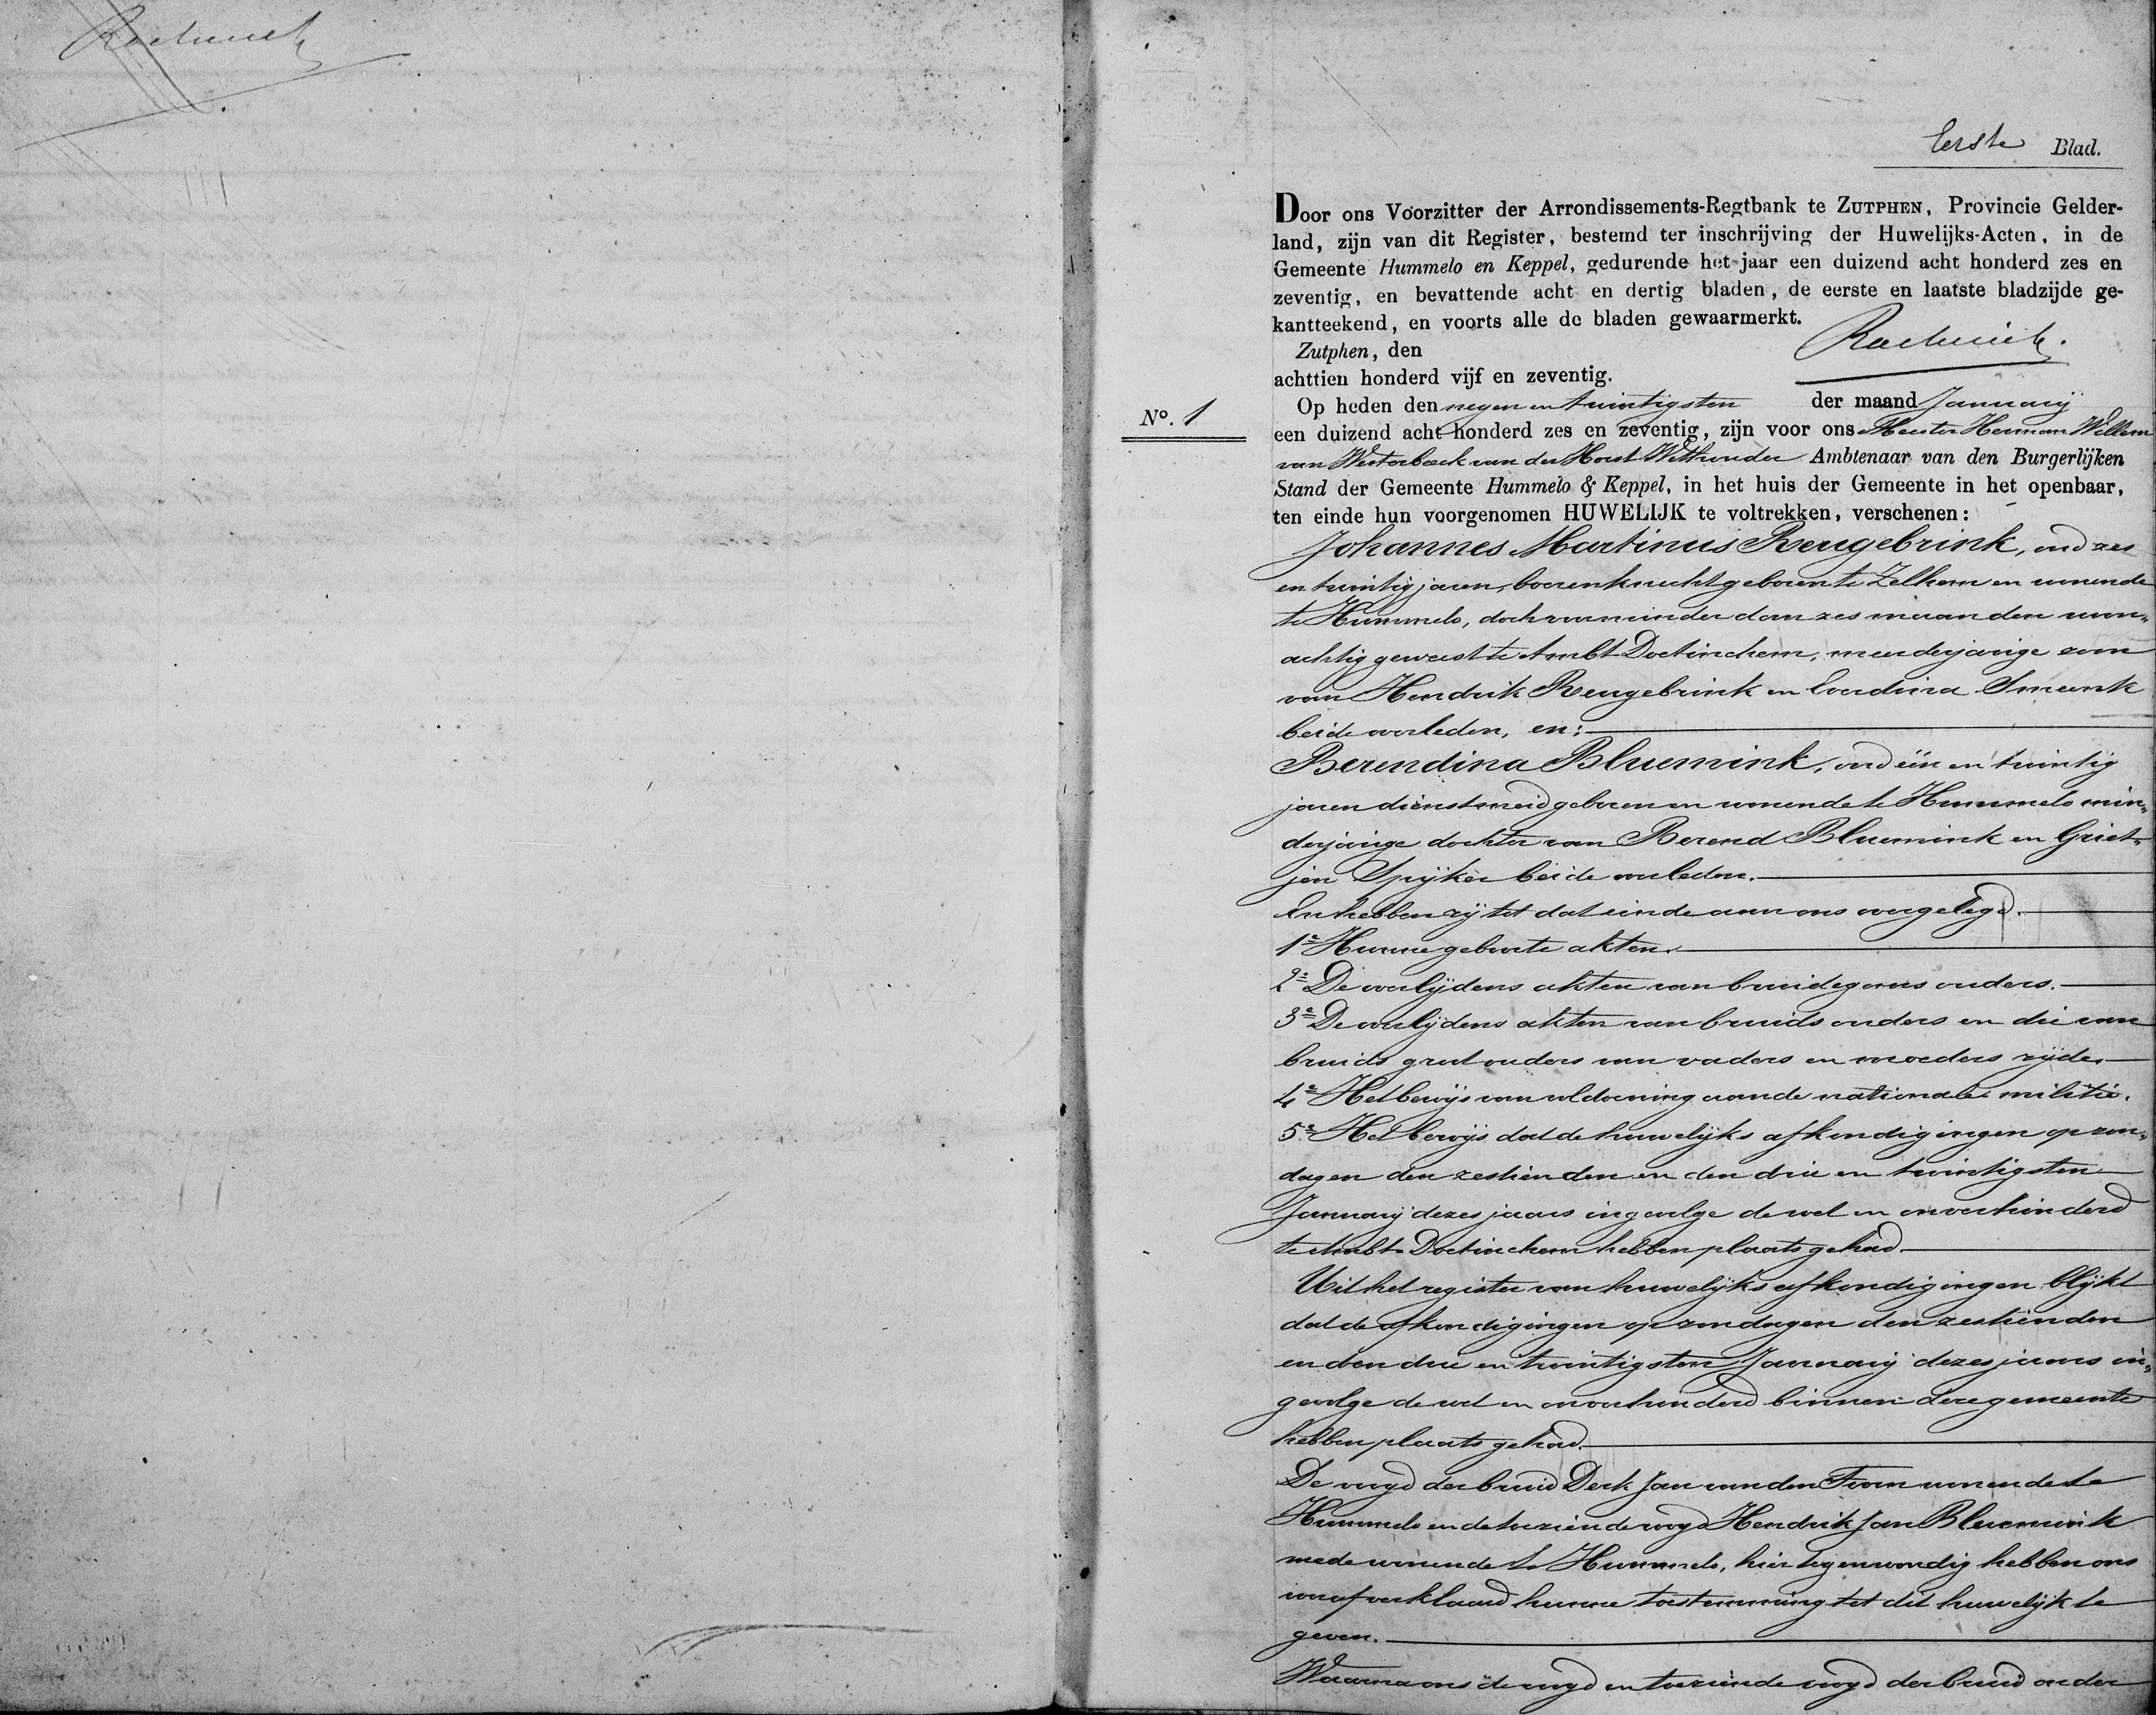 Eerste Blad.
Door ons Voorzitter der Arrondissements-Regtbank te ZUTPHEN, Provincie Gelder-
land, zijn van dit Register, bestemd ter inschrijving der Huwelijks-Acten, in de
Gemeente Hummelo en Keppel, gedurende het jaar een duizend acht honderd zes en
zeventig, en bevattende acht en dertig bladen, de eerste en laatste bladzijde ge-
kantteekend, en voorts alle de bladen gewaarmerkt.
Zutphen, den
achttien honderd vijf en zeventig.
No. 1
Op heden den negen en twintigsten der maand Januarij
een duizend acht honderd zes en zeventig, zijn voor ons Meester Herman Willem
van Westerbeek van der Horst Wethouder Ambtenaar van den Burgerlijken
Stand der Gemeente Hummelo & Keppel, in het huis der Gemeente in het openbaar,
ten einde hun voorgenomen HUWELIJK te voltrekken, verschenen:
Johannes Martinus Reugebrink, oud zes
en twintig jaren, boerenknecht geboren te Zelhem en wonende
te Hummelo, doch voor minder dan zes maanden woon„
achtig geweest te Ambt Doetinchem, meerderjarige zoon
van Hendrik Reugebrink en Smeenk
beide overleden, en:
Berendina Bluemink, oud één en twintig
jaren dienstmeid geboren en wonende te Hummelo min„
derjarige dochter van Berend Bluemink en Griet„
jen Spijker beide overleden.
En hebben zij tot dat einde aan ons overgelegd.
1e Hunne geboorte akten.
2e De overlijdens akten van bruidegoms ouders.
3e De overlijdens akten van bruids ouders en die van
bruids grootouders van vaders en moeders zijde.
4e Het bewijs van voldoening aan de nationale militie.
5e Het bewijs dat de huwelijks afkondigingen op zon„
dagen den zestienden en den drie en twintigsten
Januarij dezes jaars ingevolge de wet en onverhinderd
te Ambt Doetinchem hebben plaats gehad.
Uit het register van huwelijks afkondigingen blijkt
dat de afkondigingen op zondagen den zestienden
en den drie en twintigsten Januarij dezes jaars in„
gevolge de wet en onverhinderd binnen deze gemeente
hebben plaats gehad.
De voogd der bruid Derk Jan van den Toorn wonende te
Hummelo en de toeziende voogd Hendrik Jan Bluemink
mede wonende te Hummelo, hier tegenwoordig hebben ons
vooraf verklaard hunne toestemming tot dit huwelijk te
geven.
Waarna ons de voogd en toeziende voogd der bruid onder